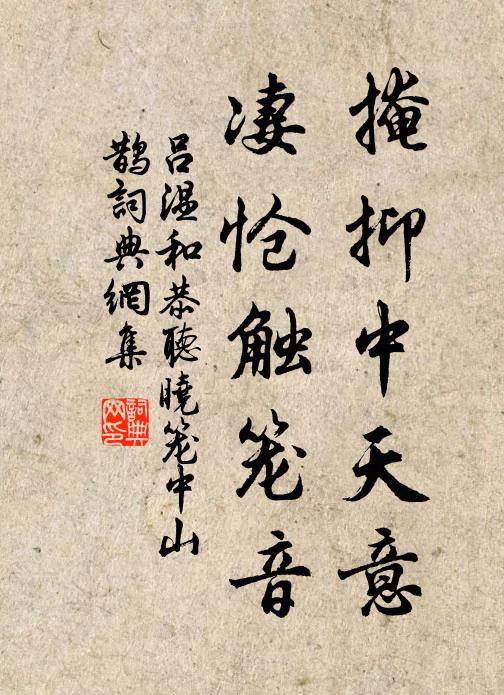 掩抑中天意
凄怆触笼音
吕温和恭聽曉笼中山
鵲詞典網集
詞典網印